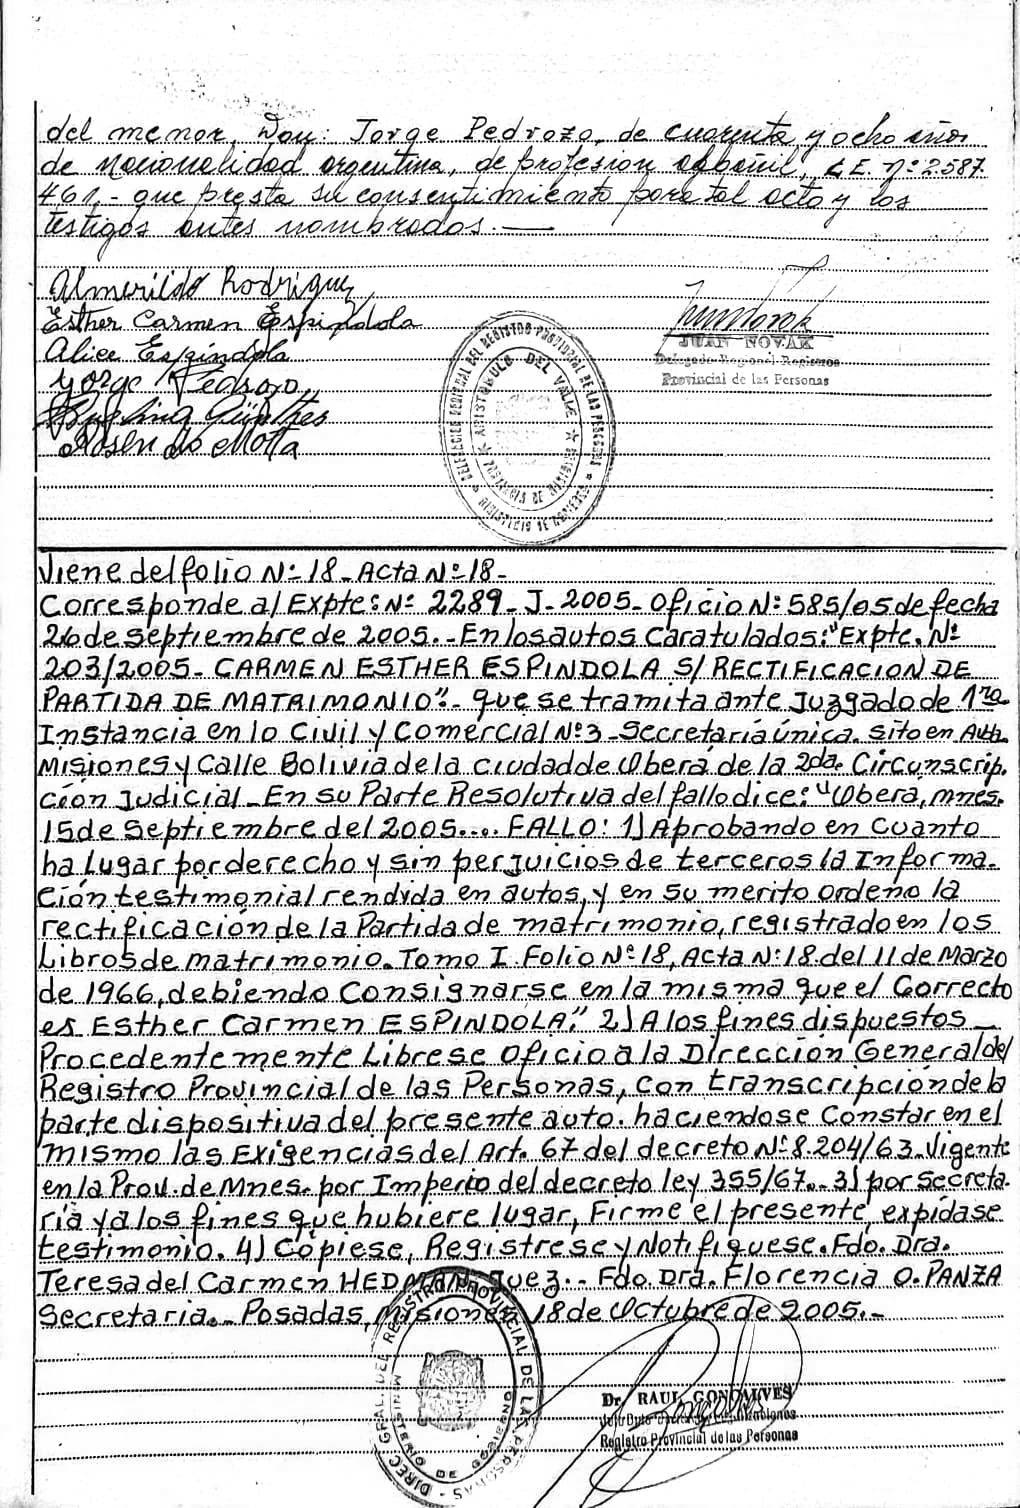 del menor, Don: Jorge Pedrozo, de cuarenta y ocho años
de nacionalidad argentina, de profesion albañil, L.E. nº 2.587.
461,- que presta su consentimiento para tal acto y los
testigos antes nombrados.
Almerildo Rodriguez
Esther Carmen Espindola
Alice Espindola
Jorge Pedrozo
Rosendo Motta
JUAN NOVAK
Delegado Regional Registros
Provincial de las Personas
DELEGACION REGIONAL DEL REGISTRO PROVINCIAL DE LAS PERSONAS
ARISTOBULO DEL VALLE
Viene del folio Nº 18 - Acta Nº 18 -
Corresponde al Expte: Nº 2289 - J - 2005 - Oficio Nº 585/05 de fecha
26 de septiembre de 2005. - En los autos caratulados: "Expte. Nº
203/2005 - CARMEN ESTHER ESPINDOLA S/ RECTIFICACION DE
PARTIDA DE MATRIMONIO". - que se tramita ante Juzgado de 1ra
Instancia en lo Civil y Comercial Nº 3 - Secretaría única. sito en Avda.
Misiones y Calle Bolivia de la ciudad de Oberá de la 2da. Circunscrip.
ción Judicial - En su Parte Resolutiva del fallo dice: "Oberá, Mnes.
15 de Septiembre del 2005.... FALLO: 1) Aprobando en cuanto
ha Lugar por derecho y sin perjuicios de terceros la Informa-
ción testimonial rendida en autos, y en su merito ordeno la
rectificación de la Partida de matrimonio, registrado en los
Libros de matrimonio. Tomo I. Folio Nº 18, Acta Nº 18 del 11 de Marzo
de 1966, debiendo Consignarse en la misma que el Correcto
es Esther Carmen ESPINDOLA," 2) A los fines dispuestos
Procedentemente Librese Oficio a la Dirección General del
Registro Provincial de las Personas, con transcripción de la
parte dispositiva del presente auto. haciendose Constar en el
mismo las Exigencias del Art. 67 del decreto Nº 8.204/63. Vigente
en la Prov. de Mnes. por Imperio del decreto ley 355/67.. 3) por secreta-
ría y a los fines que hubiere lugar, Firme el presente, expídase
testimonio. 4) Cópiese, Registrese y Notifíquese. Fdo. Dra.
Teresa del Carmen HEDMAN. Juez. - Fdo. Dra. Florencia O. PANZA
Secretaria. - Posadas, Misiones, 18 de Octubre de 2005. -
DIREC. GRAL. DEL REGISTRO PROVINCIAL DE LAS PERSONAS -
MINISTERIO DE GOBIERNO
Dr. RAUL GONCALVES
Registro Provincial de las Personas